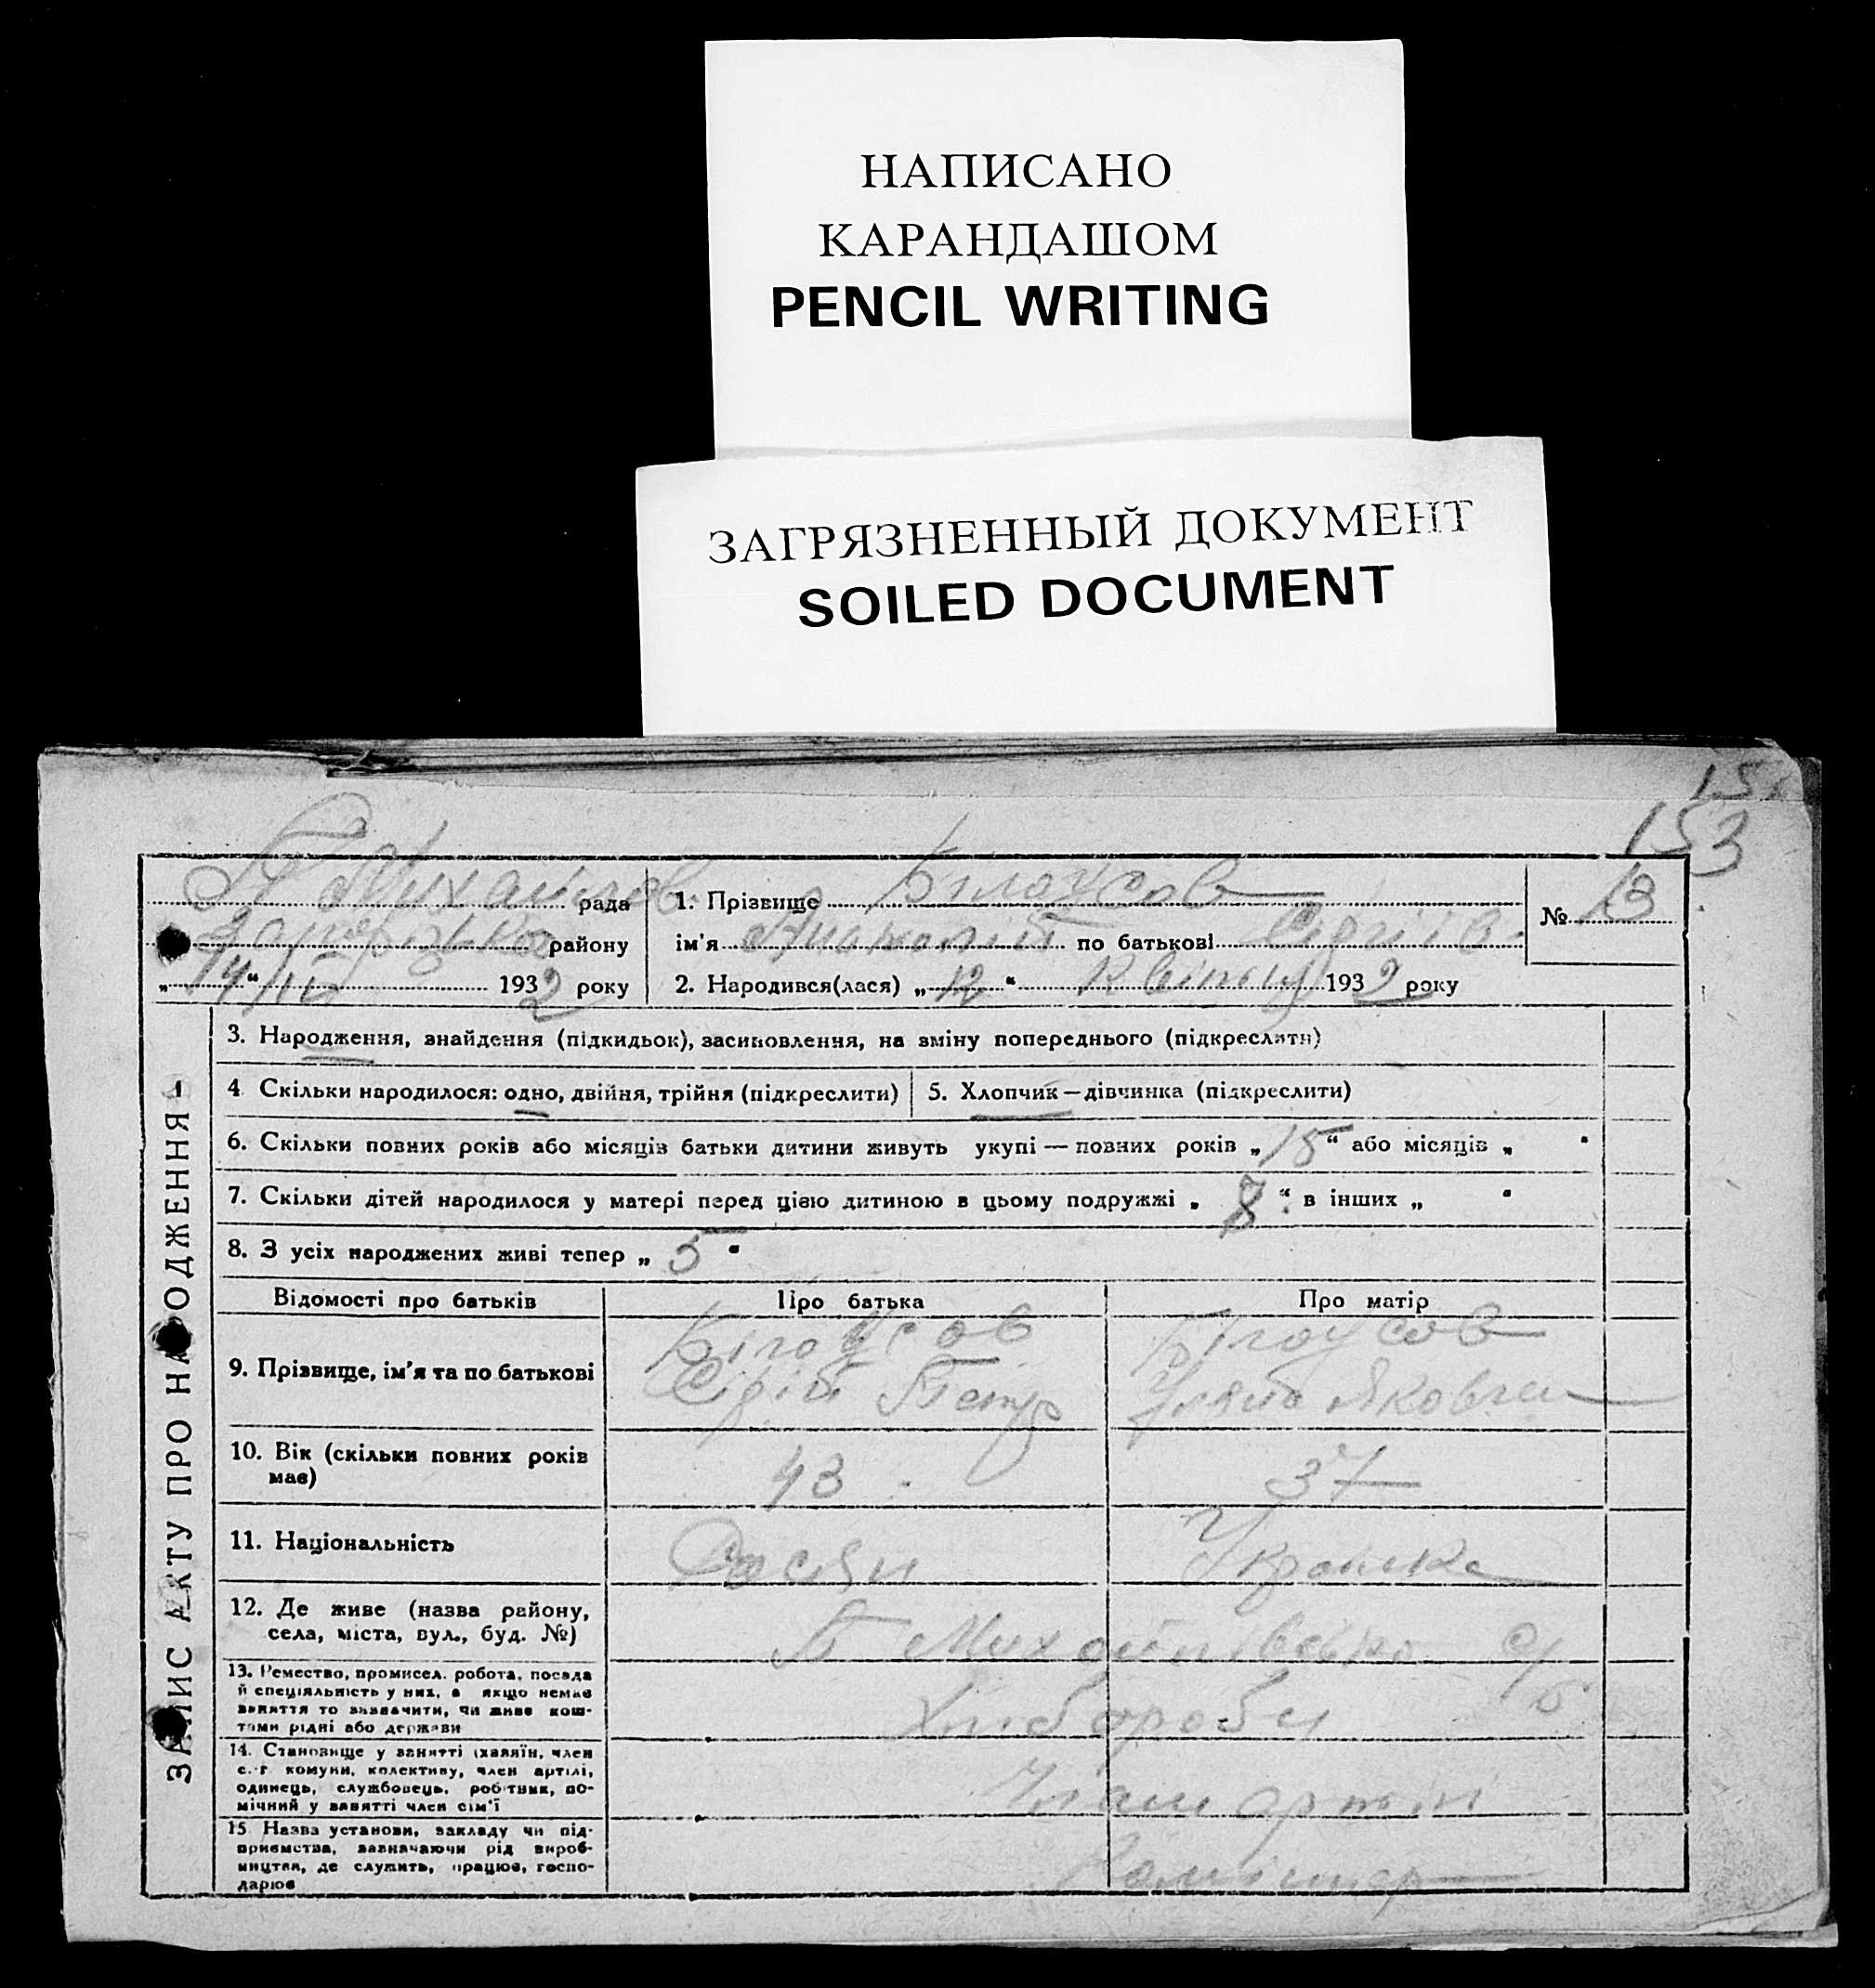 НАПИСАНО
КАРАНДАШОМ
PENCIL WRITING
ЗАГРЯЗНЕННЫЙ ДОКУМЕНТ
SOILED DOCUMENT
15
153
П Михайлов рада
району
„14/IV“ 1932 року
1. Прізвище Білоусов
ім'я Анатолій по батькові Сергіїв
2. Народився(лася) „12“ Квітня 1932 року
№ 13
ЗАПИС АКТУ ПРО НАРОДЖЕННЯ
3. Народження, знайдення (підкидьок), засиновлення, на зміну попереднього (підкреслити)
4 Скільки народилося: одно, двійня, трійня (підкреслити)
5. Хлопчик — дівчинка (підкреслити)
6. Скільки повних років або місяців батьки дитини живуть укупі — повних років „15“ або місяців „ “
7. Скільки дітей народилося у матері перед цією дитиною в цьому подружжі „ “ в інших „ “
8. З усіх народжених живі тепер „5“
Відомості про батьків
Про батька
Про матір
9. Прізвище, ім'я та по батькові
Білоусов
Петр
Білоусов
Яковна
10. Вік (скільки повних років має)
43
37
11. Національність
Росіян
Українка
12. Де живе (назва району,
села, міста, вул., буд. №)
П Михайлівська с/р
13. Ремество, промисел. робота, посада
й спеціяльність у них, а якщо немає
заняття то зазначити, чи живе кош-
тами рідні або держави
Хлібороби
14. Становище у занятті (хазяїн, член
с.-г. комуни, колективу, член артілі,
одинець, службовець, робітник, по-
мічний у занятті член сім'ї
Член артіли
15 Назва установи, закладу чи під-
приємства, зазначаючи рід вироб-
ництва, де служить, працює, госпо-
дарює